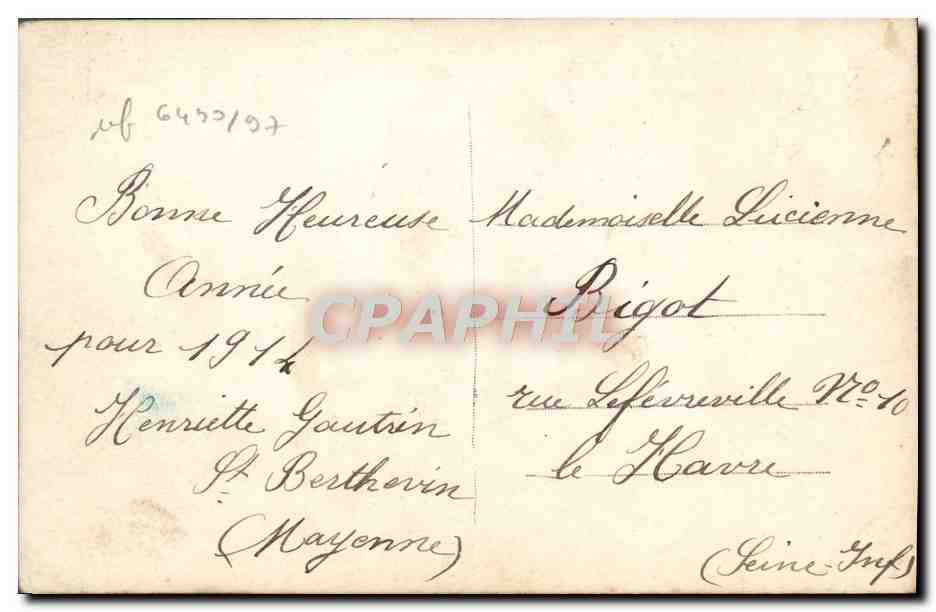 6490/97
Bonne Heureuse
Année
pour 1914
Henriette Gautrin
St Berthevin
(Mayenne)
Mademoiselle Lucienne
Bigot
rue Lefèvreville No 10
le Havre
(Seine-Inf)
CPAPHIL